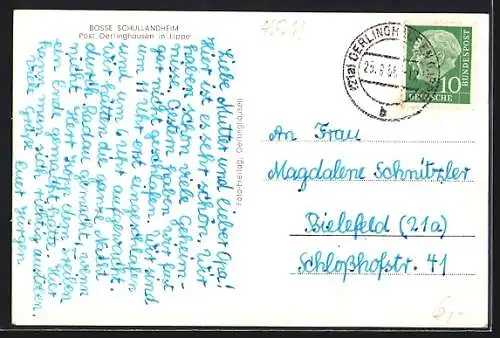 BOSSE SCHULLANDHEIM
Post Oerlinghausen in Lippe
Liebe Mutter und lieber Opa!
Hier ist es sehr schön. Wir
haben schon viele Geheim-
nisse. Gestern haben wir fast
gar nicht geschlafen. Wir sind
um 11 Uhr erst eingeschlafen
und um 6 Uhr aufgewacht.
Wir hätten die ganze Nacht
durch Radau gemacht, wenn
nicht Herr dem Treiben
ein Ende gemacht hätte. Hier
muß ich
Viele Grüße
Euer
Foto-Freitag, Oerlinghausen
(21a) OERLINGHAUSEN
b
10
DEUTSCHE
BUNDESPOST
An Frau
Magdalene Schnitzler
Bielefeld (21a)
Schloßhofstr. 41
6,-